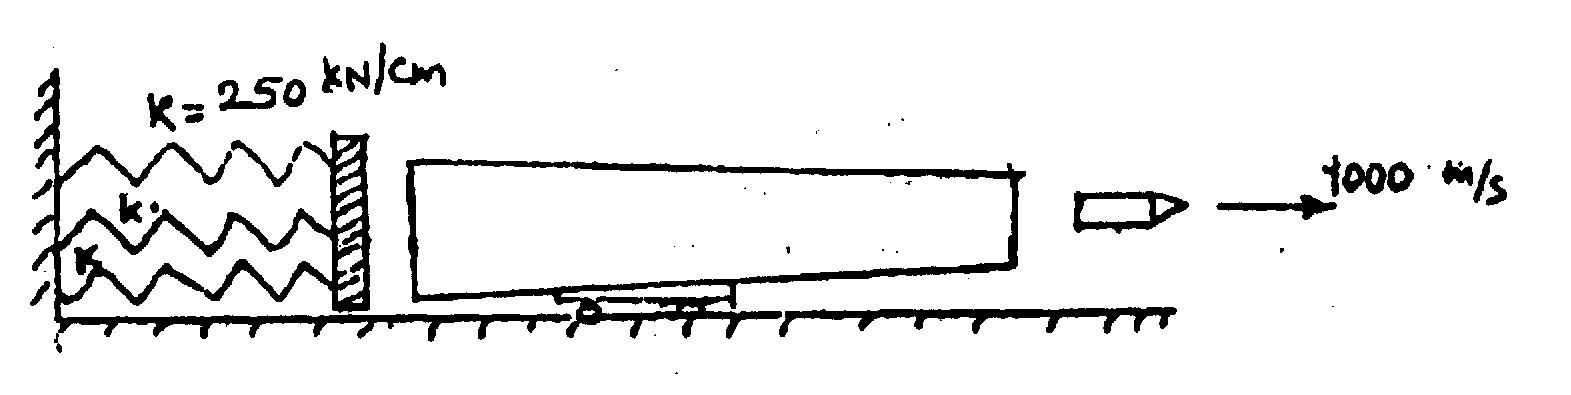 K = 250 kN/cm
k.
K
1000 m/s